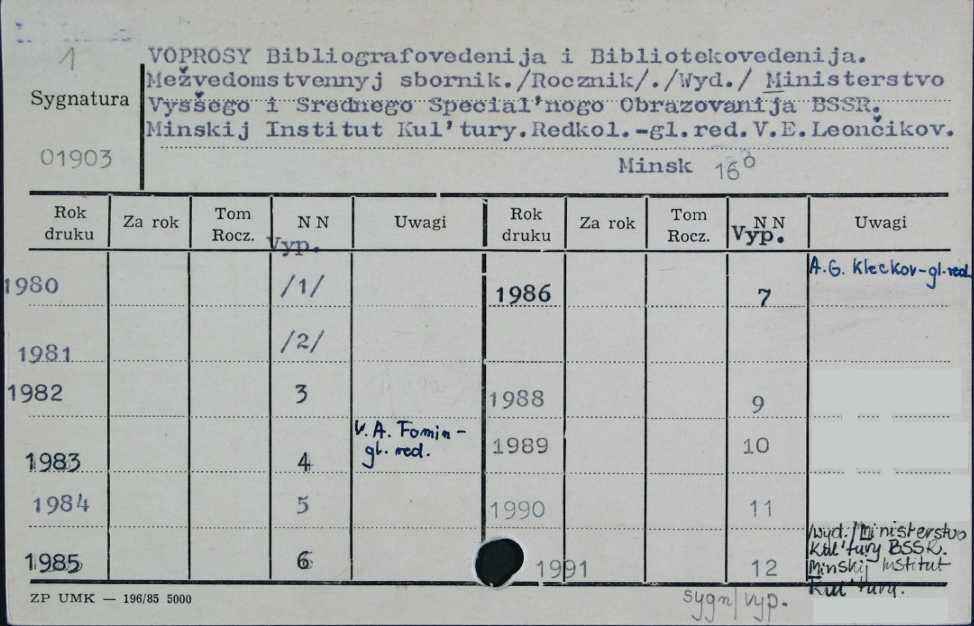 1
VOPROSY Bibliografovedenija i Bibliotekovedenija.
Mežvedomstvennyj sbornik./Rocznik/./Wyd./ Ministerstvo
Sygnatura
Vysšego i Srednego Special'nogo Obrazovanija BSSR.
Minskij Institut Kul'tury.Redkol.-gl.red.V.E.Leončikov.
01903
Minsk 16°
Rok druku Za rok Tom Rocz. NN Vyp. Uwagi Rok druku Za rok Tom Rocz. NN Vyp. Uwagi
1980 /1/ 1986 7 A.G. Kleckov-gl.red.
1981 /2/
1982 3 1988 9
1983 4 V.A. Fomin- gl. red. 1989 10
1984 5 1990 11
1985 6 1991 12 /wyd./Ministerstvo Kul'tury BSSR. Minskij Institut Kul'tury.
ZP UMK — 196/85 5000
sygn/vyp.